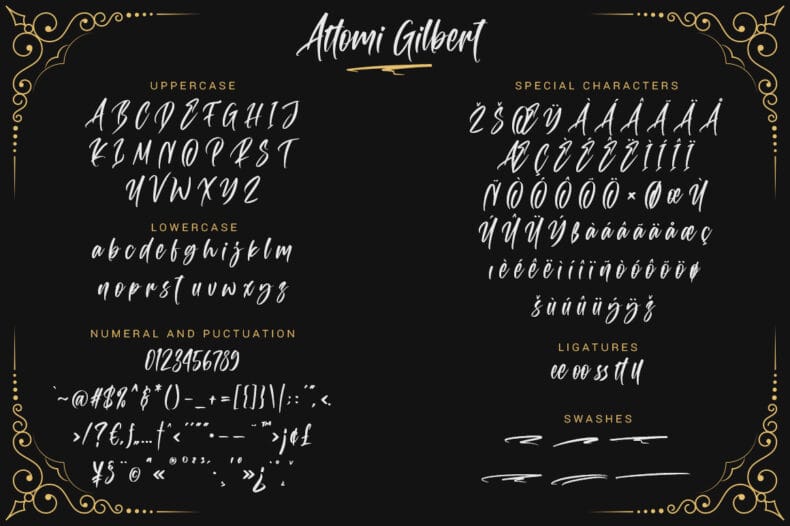 Attomi Gilbert
UPPERCASE
A B C D E F G H I J
K L M N O P R S T
U V W X Y Z
LOWERCASE
a b c d e f g h i j k l m
n o p r s t u v w x y z
NUMERAL AND PUCTUATION
0123456789
` ~ @ # $ % ^ & * ( ) - _ + = [ { ] } \ | ; : ' " , < .
> / ? € ‚ ƒ „ … † ˆ ‹ ‘ ’ “ ” • – — ˜ ™ › ¡ ¢ £
SPECIAL CHARACTERS
Ž Š Œ Ÿ À Á Â Ã Ä Å
Æ Ç È É Ê Ë Ì Í Î Ï
Ñ Ò Ó Ô Õ Ö × Ø œ Ù
Ú Û Ü Ý ß à á â ã ä å æ ç
ı è é ê ë ì í î ï ñ ò ó ô õ ö ø
š ù ú û ü ý ÿ ž
LIGATURES
ee oo ss tt ll
SWASHES